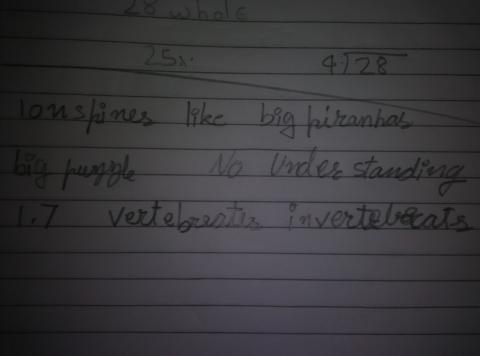 28 whole
25%. 4)28
lonspines like big piranhas
big puzzle No Understanding
1.7 vertebreates invertebrcats